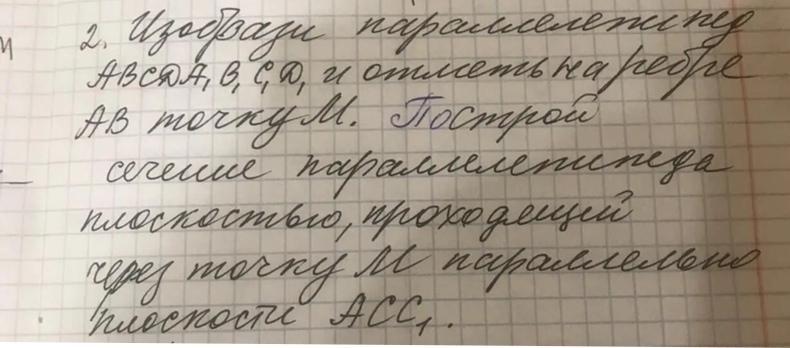 2. Изобрази параллелепипед
ABCDA₁B₁C₁D₁ и отметь на ребре
AB точку M. Построй
сечение параллелепипеда
плоскостью, проходящей
через точку M параллельно
плоскости ACC₁.